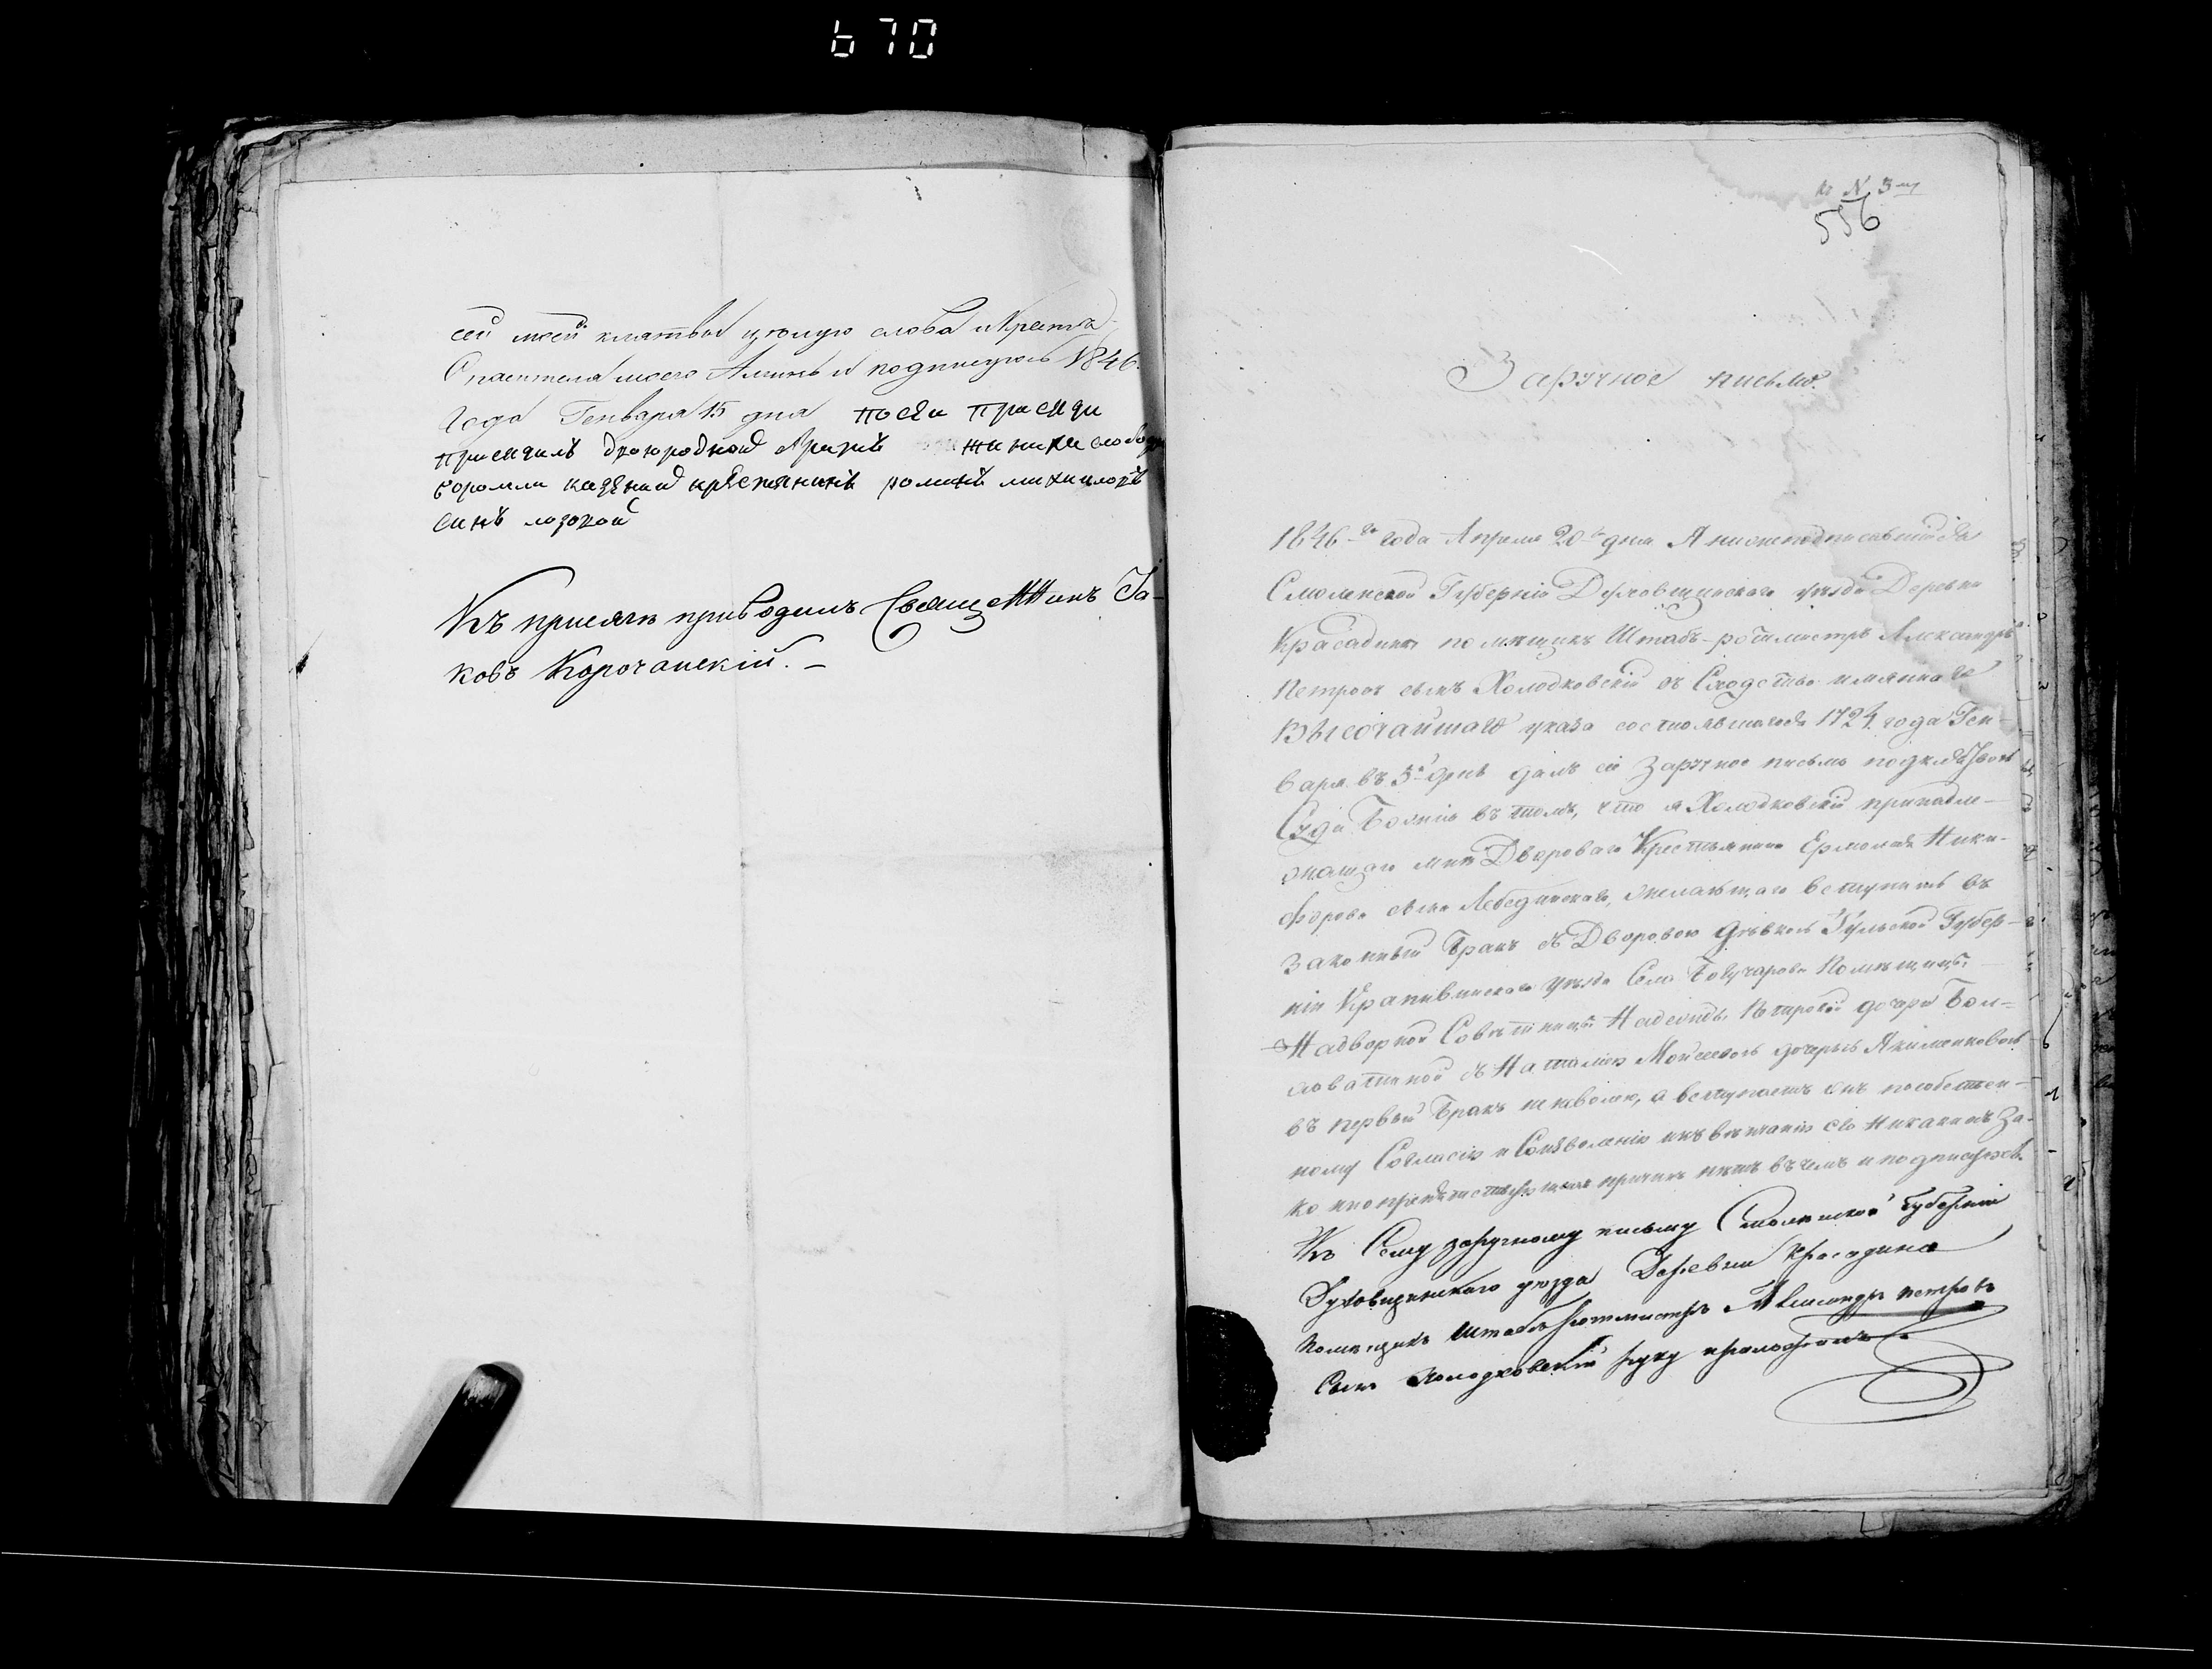 670
сей моей клятвы цѣлую слова и Креста
Спасителя моего Аминь и подпишуюсь 1846.
Года Генваря 15 дня посеи присяги
присягалъ двоюродной жениха слободы
боромли казеной крестянинъ романъ михаиловъ
синъ лозовой
Къ присягѣ приводилъ Священникъ Іа-
ковъ Корочанскій. –
къ N 5му
556
Заручное письмо.
1846-го года Апреля 20-го дня Я нижеподписавшійся
Смоленской Губерніи Духовщинскаго уѣзда Деревни
Красадина помѣщикъ Штабъ-ротмистръ Александръ
Петровъ сынъ Холодковскій въ Сходство имяннаго
Высочайшаго указа состоявшагося 1724 года Ген-
варя въ 5й день далъ сіе заручное письмо подклятвою
Суда Божія въ томъ, что я Холодковскій принадле-
жащаго мнѣ Двороваго Крестьянина Ермолая Ники-
форова сына Лебединскаго, желающаго вступить въ
законный бракъ съ Дворовою дѣвкою Тульской Губер-
ніи Крапивинскаго уѣзда Села Помѣщицы
Надворной Совѣтницы Надежды Петровой дочери Бол-
товатиной съ Наталіею Моисеевою дочерью Якименковою
въ первый бракъ не неволею, а вступаетъ онъ пособствен-
ному Согласію и Соизволенію къ вѣнчанію его Никакихъ За-
конопрепятствующихъ причинъ нѣтъ въ чемъ и подписуюсь.
Къ Сему заручному письму Смоленской губерніи
Духовщинскаго уѣзда Деревни Красадина
Помѣщикъ Штабъ Ротмистръ Александръ петровъ
Сынъ Холодковскій руку приложилъ